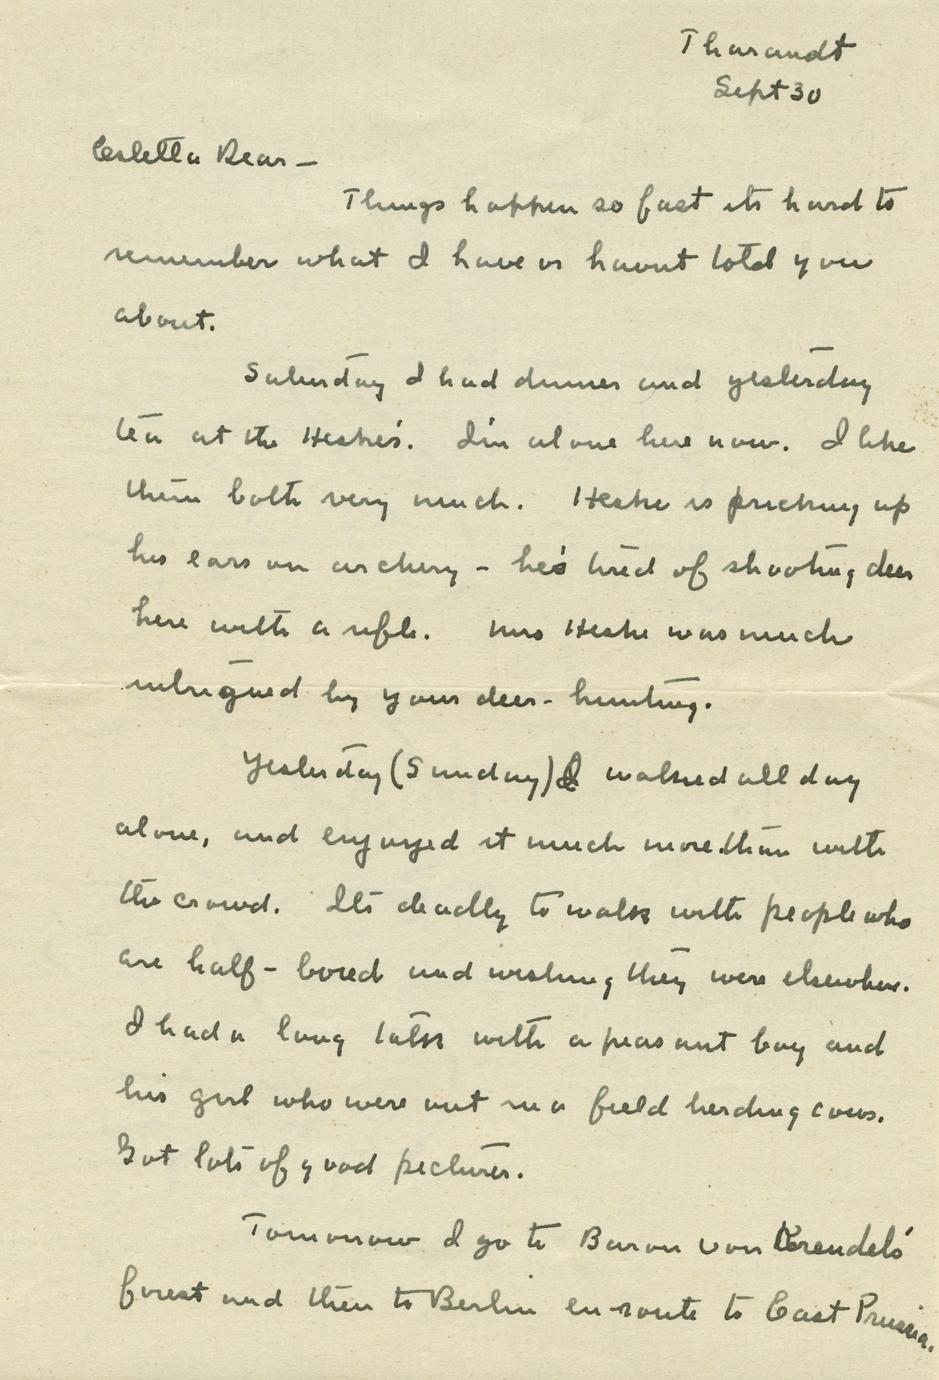 Tharandt
Sept 30
Estella Dear –
Things happen so fast its hard to
remember what I have or havnt told you
about.
Saturday I had dinner and yesterday
tea at the Heske's. I'm alone here now. I like
them both very much. Heske is pricking up
his ears on archery – he's tired of shooting deer
here with a rifle. Mrs Heske was much
intrigued by your deer-hunting.
Yesterday (Sunday) I walked all day
alone, and enjoyed it much more than with
the crowd. Its deadly to walk with people who
are half-bored and wishing they were elsewhere.
I had a long talk with a peasant boy and
his girl who were out in a field herding cows.
Got lots of good pictures.
Tomorrow I go to Baron von
forest and then to Berlin en route to East Prussia.